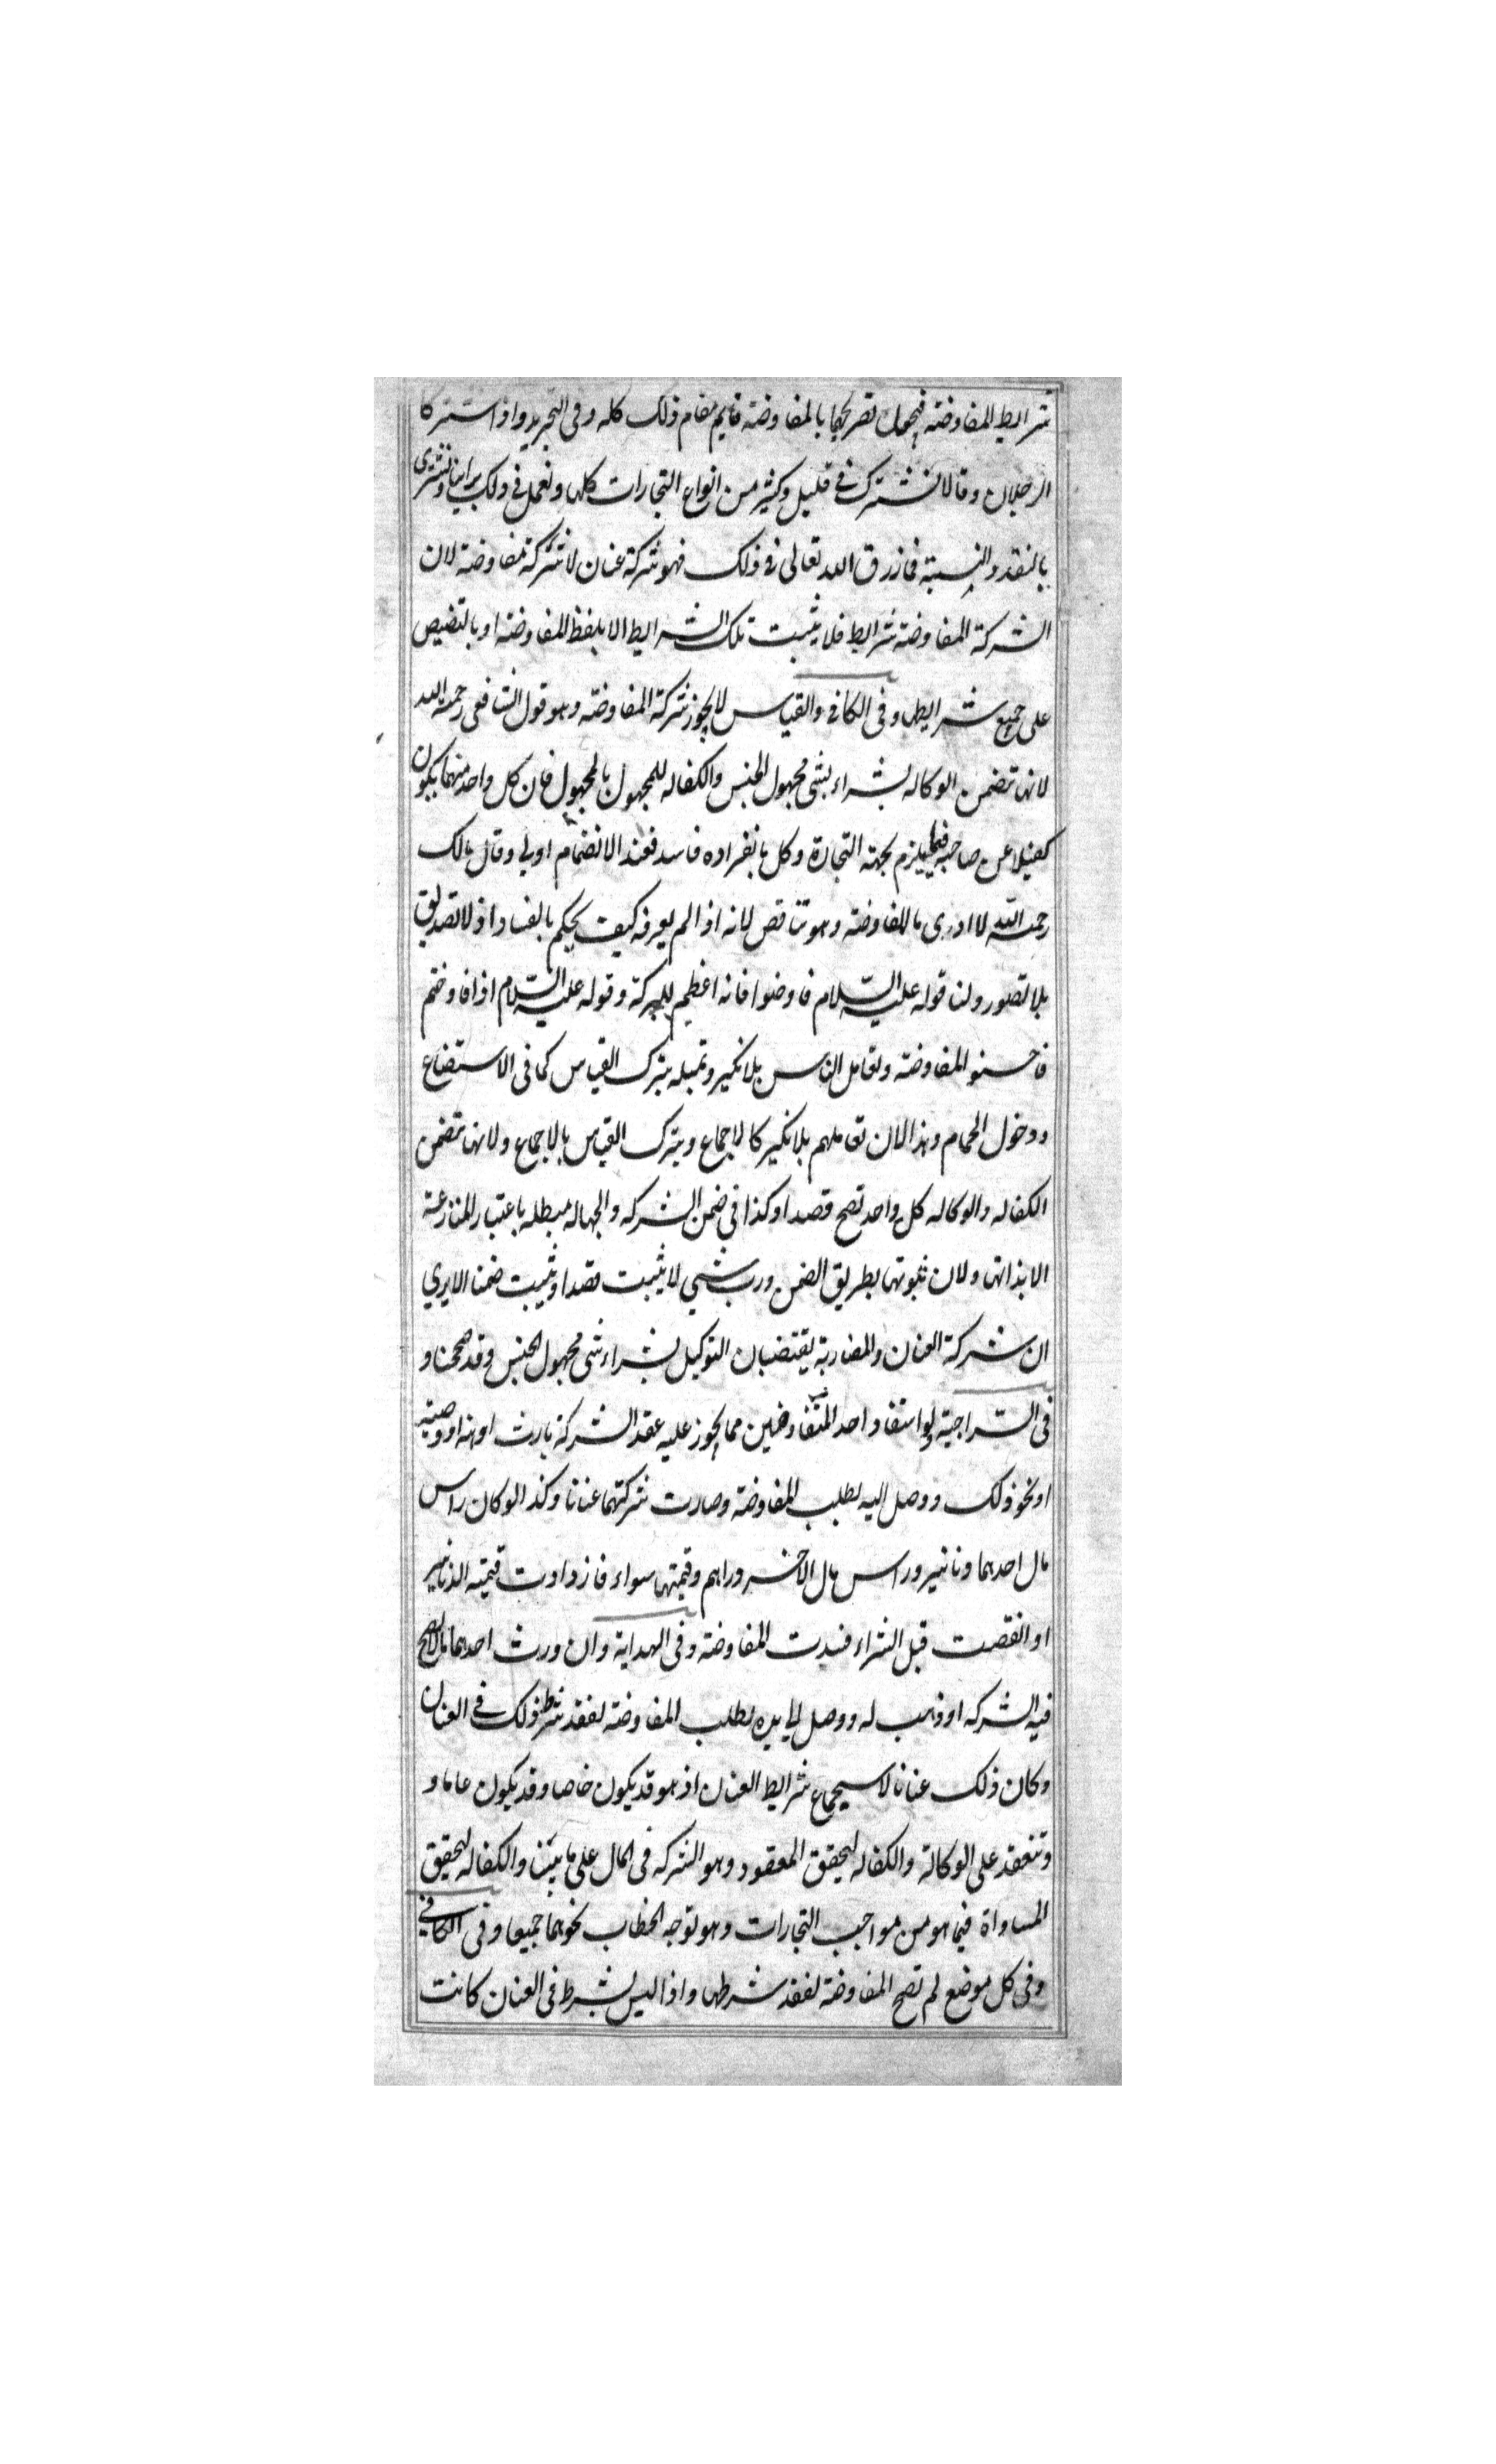 شرايط المفاوضة فيجعل تصريحهما بالمفاوضة قايم مقام ذلك كله وفى التجريد واذا اشتركا
الرجلان وقالا نشترك فى قليل وكثير من انواع التجارات كلها ونعمل فى ذلك براينا ونشترى
بالنقد والنسيته فما زرق الله تعالى فى ذلك فهو شركة عنان لا شركة مفاوضة لان
الشركة المفاوضة شرايط فلا يثبت تلك الشرايط الا بلفظ المفاوضة او بالتضيص
على جميع شرايطها وفى الكافى والقياس لا يجوز شركة المفاوضة وهو قول الشافعى رحمة الله
لانها تضمن الوكاله بشراء بشى مجهول الجنس والكفاله للمجهول بالمجهول فان كل واحد منهما يكون
كفيلا عن صاحبه فيما يلزم بجهة التجارة وكل بانفراده فاسد فعند الانضمام اولى وقال مالك
رحمة الله لا ادرى ما المفاوضة وهو تناقض لانه اذا لم يعرفه كيف يحكم بالفساد اذ لا تصديق
بلا تصور ولنا قوله عليه السّلام فاوضوا فانه اعظم للبركة وقوله عليه السّلام اذا فاوضتم
فاحسنو المفاوضة ولتعامل الناس بلا نكير وبمثله يترك القياس كما فى الاستضاع
ودخول الحمام وهذا لان تعاملهم بلا نكير كالاجماع ويترك القياس بالاجماع ولانها تضمن
الكفاله والوكاله كل واحد تصح قصدا وكذا فى ضمن الشركه والجهاله مبطله باعتبار المنازعة
الا بذاتها ولان ثبوتها بطريق الضمن ورب شىي لا يثبت قصدا ويثبت ضمنا الا يرى
ان شركة العنان والمضاربة يقتضيان التوكيل بشراء شى مجهول الجنس وقد صححنا و
فى السّراجية ولو استفاد احد المتفاوضين مما يجوز عليه عقد الشركة بارث او هبه او وصية
او نحو ذلك ووصل اليه بطلب المفاوضة وصارت شركتهما عنانا وكذا لو كان راس
مال احدهما دنانير وراس مال الاخر دراهم وقيمتها سواء فازدادت قيمته الدنانير
او انقصت قبل الشراء فسدت المفاوضة وفى الهداية وان ورث احدهما مالا يصح
فيه الشركه او وهب له ووصل الى يده بطلب المفاوضة لفقد شرط ذلك فى العنان
وكان ذلك عنانا لاسيجماع شرايط العنان اذ هو قد يكون خاصا وقد يكون عاما و
وتنعقد على الوكالة والكفاله ليحقق المعقود وهو الشركه فى المال على ما بيّنا والكفاله ليحقق
المساواة فيما هو من مواجب التجارات وهو توجه الخطاب نحوهما جميعا وفى الكافى
وفى كل موضع لم تصح المفاوضة لفقد شرطها واذا ليس بشرط فى العنان كانت